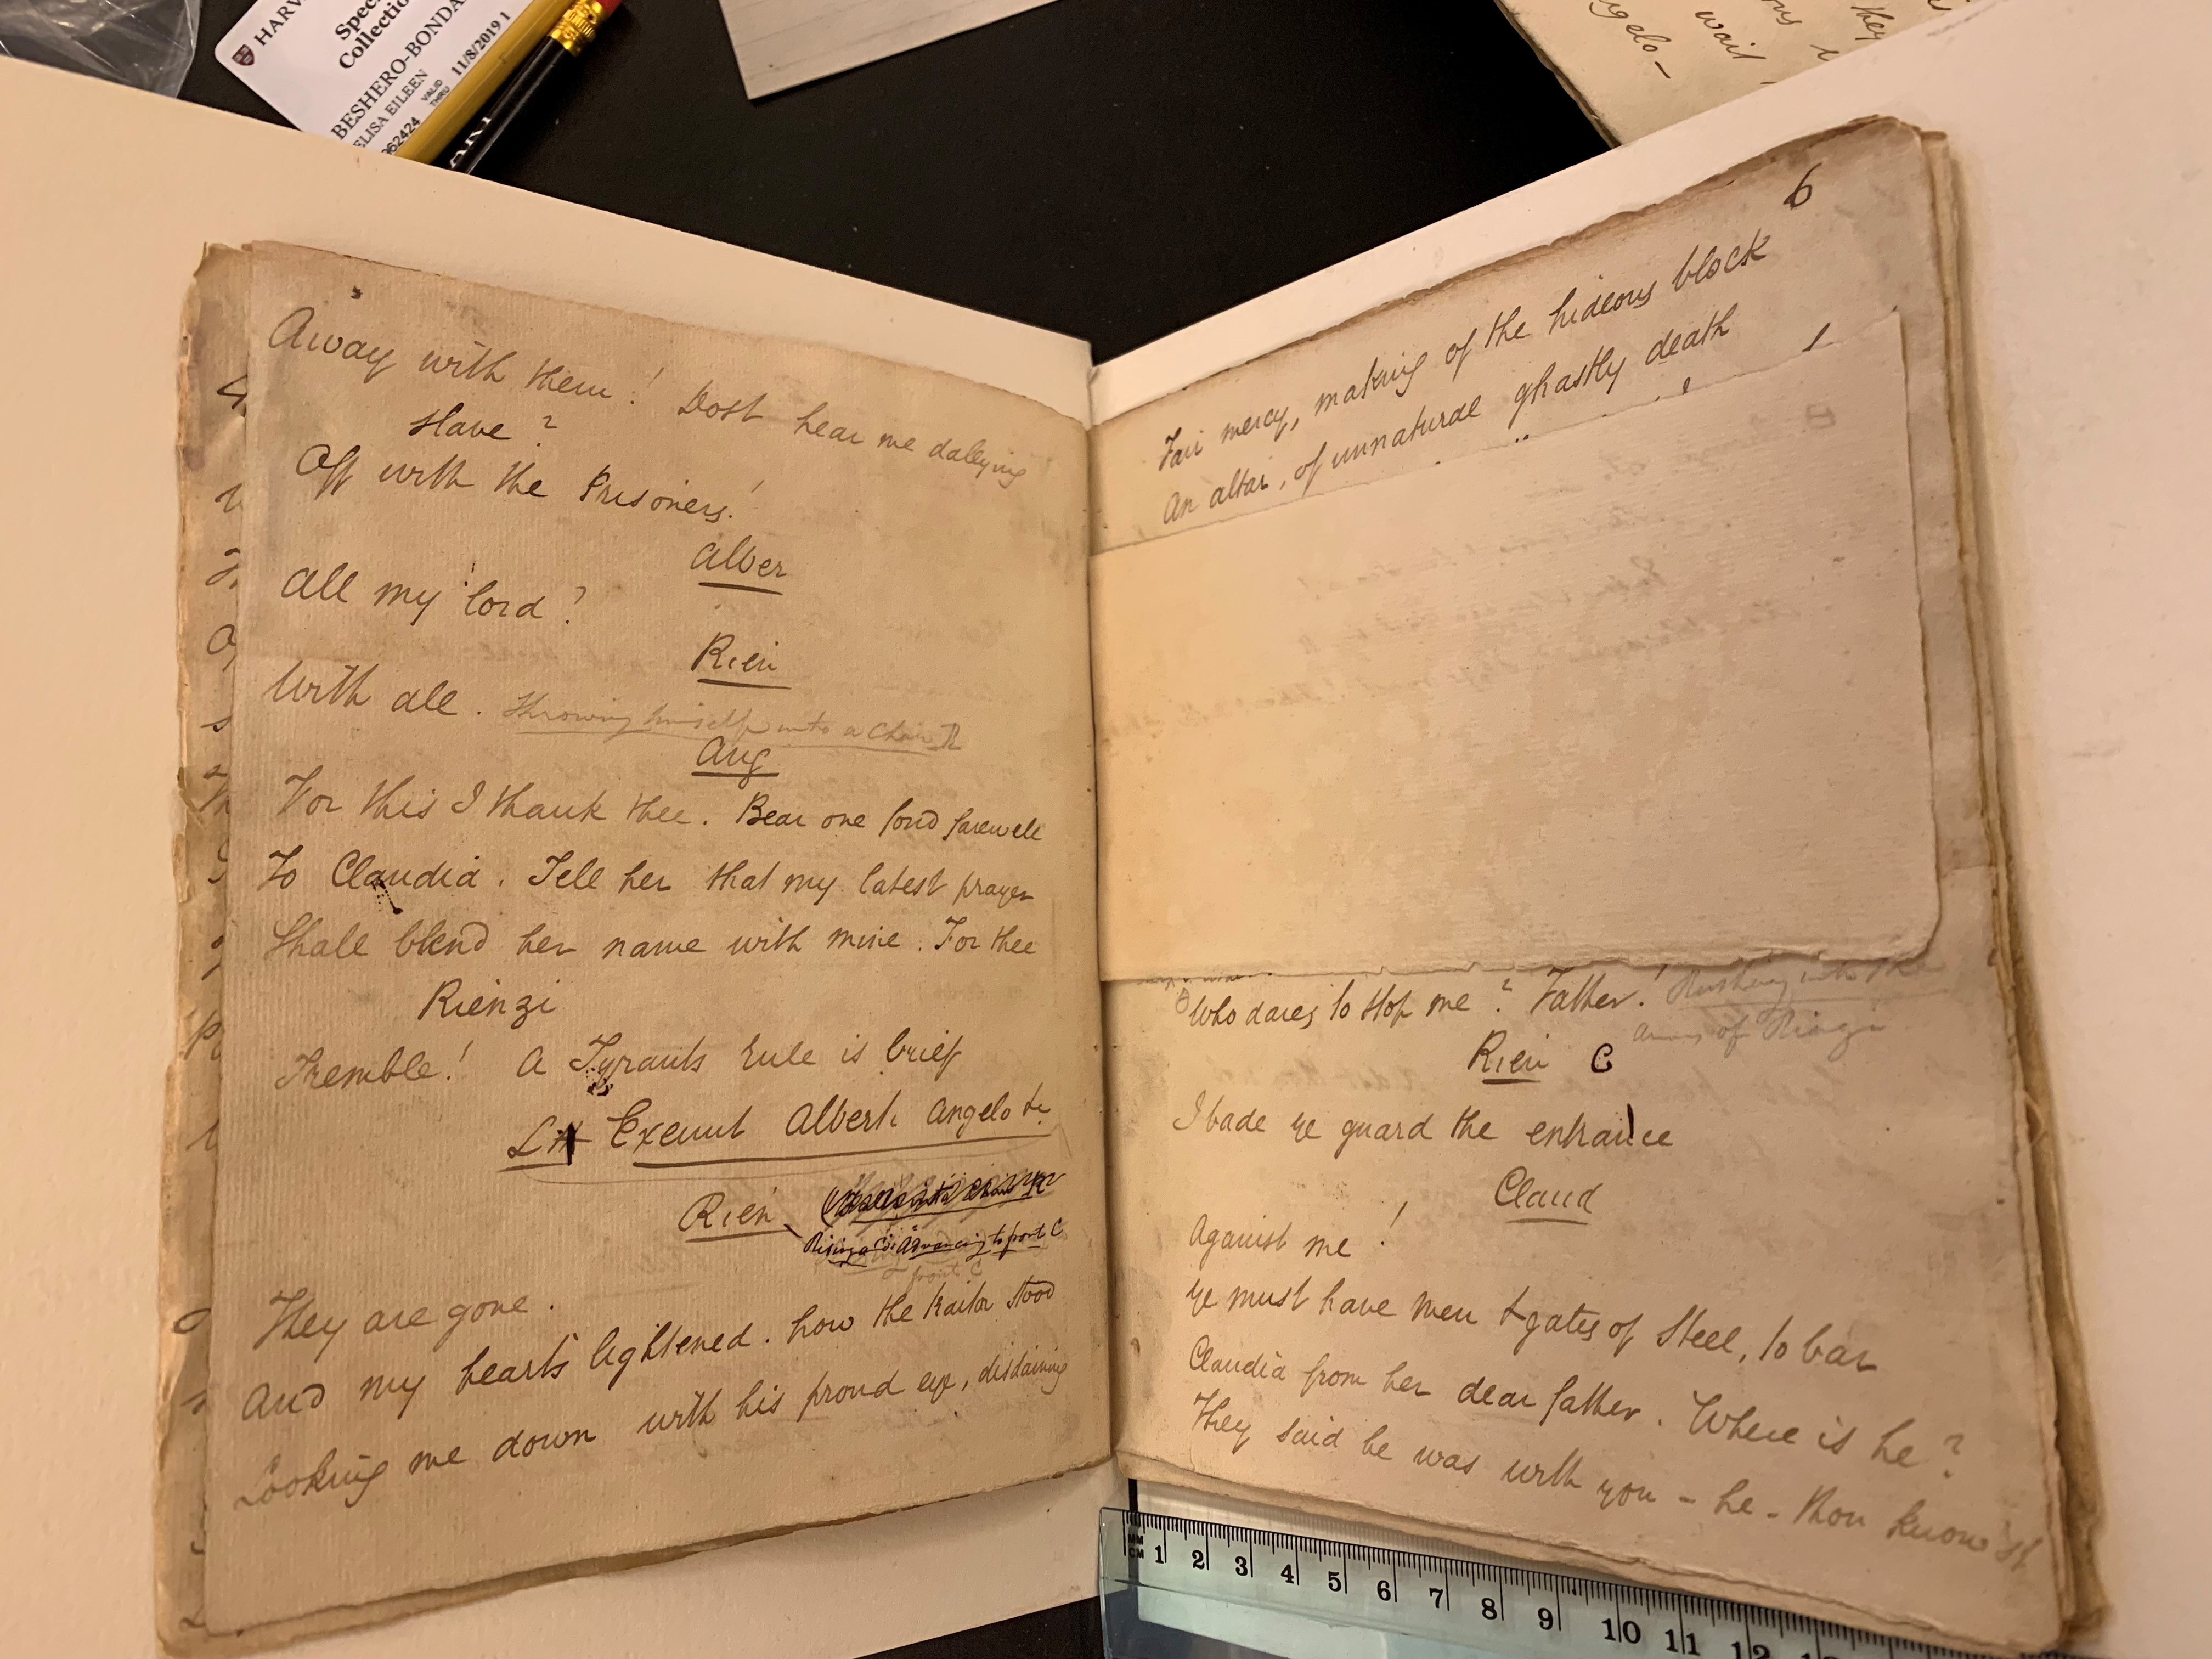 HARV
Spec
Collectio
BESHERO-BONDA
ELISA EILEEN
VALID
THRU
11/8/2019 1
062424
they
wait
gelo -
Away with them! Dost hear me dallying
Slave?
Off with the Prisoners!
Alber
All my lord?
Rien
With all. Throwing himself into a Chair R
Ang
For this I thank thee. Bear one fond farewell
To Claudia. Tell her that my latest prayer
Shall blend her name with mine. For thee
Rienzi
Tremble! A Tyrants rule is brief
LH Exeunt Alberti Angelo &c
Rien
Rising & Advancing to front C
front C
They are gone.
And my hearts lightened. how the traitor stood
Looking me down with his proud eye, disdaining
6
Fair mercy, making of the hideous block
An altar, of unnatural ghastly death
Who dares to stop me? Father! Rushing into the
arms of Rienzi
Rien C
I bade ye guard the entrance
Claud
Against me!
Ye must have men & gates of Steel, to bar
Claudia from her dear father. Where is he?
They said he was with you - he - Thou know'st
MM
CM
1 2 3 4 5 6 7 8 9 10 11 12